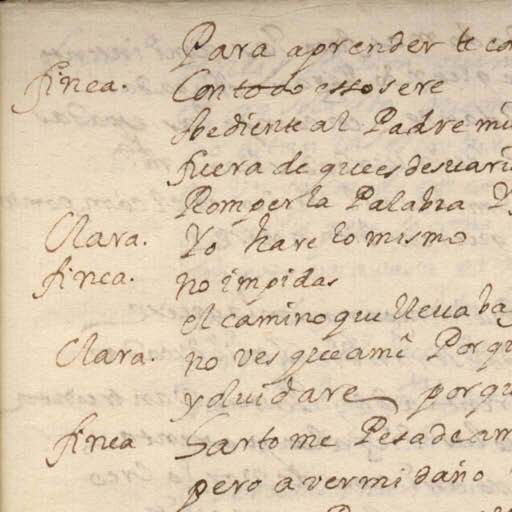 Para aprender te co
finea. Con todo esso sere
obediente al Padre mi
fuera de que es desuari
Romper la Palabra
Clara. Yo hare lo mismo
finea. no impidas
el camino que lleuaba
Clara. no ves que ami Porqu
y oluidare porqu
finea harto me Pesa de am
pero a ver mi daño